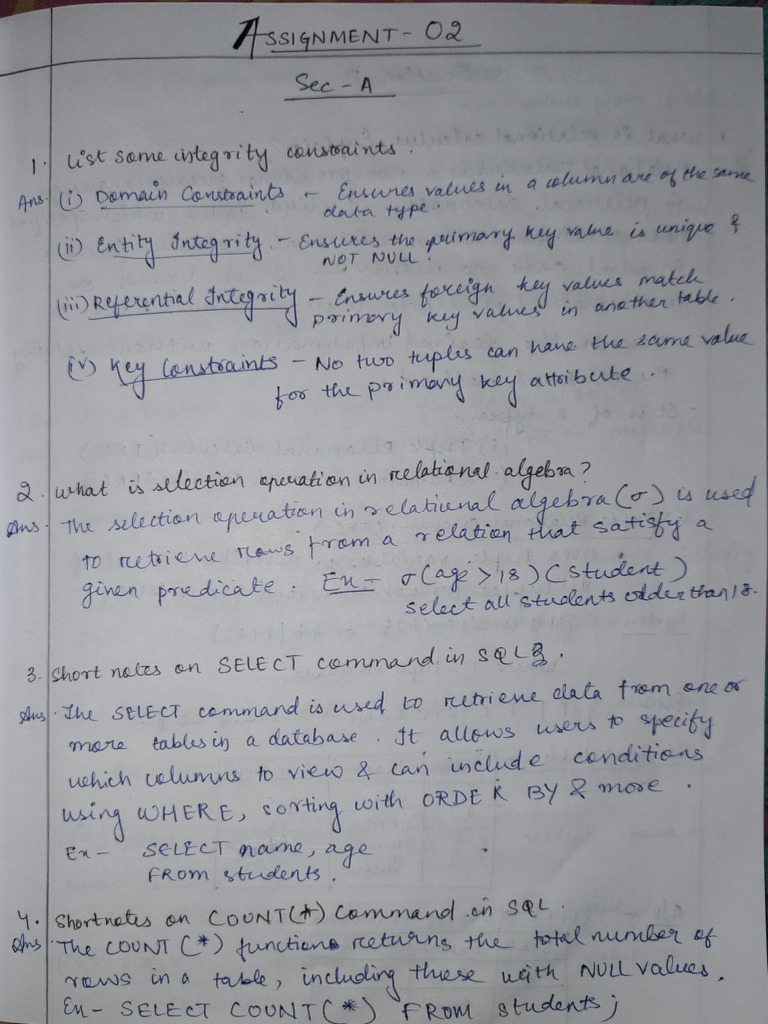 ASSIGNMENT - 02
Sec - A
1. List some integrity constraints.
Ans. (i) Domain Constraints - Ensures values in a column are of the same
data type.
(ii) Entity Integrity - Ensures the primary key value is unique &
NOT NULL.
(iii) Referential Integrity - Ensures foreign key values match
primary key values in another table.
(iv) Key Constraints - No two tuples can have the same value
for the primary key attribute.
2. What is selection operation in relational algebra?
Ans. The selection operation in relational algebra (σ) is used
to retrieve rows from a relation that satisfy a
given predicate. Ex - σ(age > 18) (student)
select all students older than 18.
3. Short notes on SELECT command in SQL.
Ans. The SELECT command is used to retrieve data from one or
more tables in a database. It allows users to specify
which columns to view & can include conditions
using WHERE, sorting with ORDER BY & more.
Ex - SELECT name, age
FROM students.
4. Shortnotes on COUNT(*) command in SQL.
Ans The COUNT (*) function returns the total number of
rows in a table, including those with NULL values.
Ex - SELECT COUNT(*) FROM students;